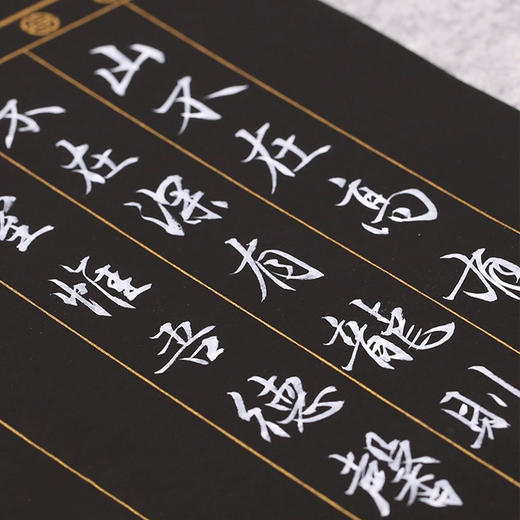 山不在高有
不在深有龍則
室惟吾德馨